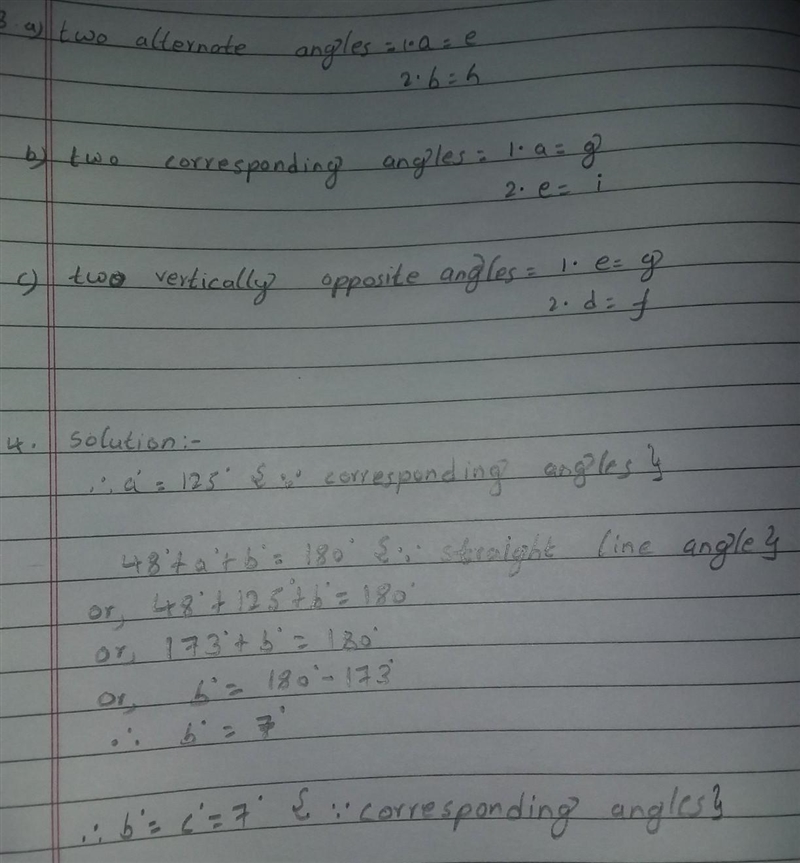 3. a) two alternate angles = 1. a = e
2. b = h
b) two corresponding angles = 1. a = g
2. e = i
c) two vertically opposite angles = 1. e = g
2. d = f
4. Solution:-
∴ a° = 125° {∵ corresponding angles}
48° + a° + b° = 180° {∵ straight line angle}
or, 48° + 125° + b° = 180°
or, 173° + b° = 180°
or, b° = 180° - 173°
∴ b° = 7°
∴ b° = c° = 7° {∵ corresponding angles}